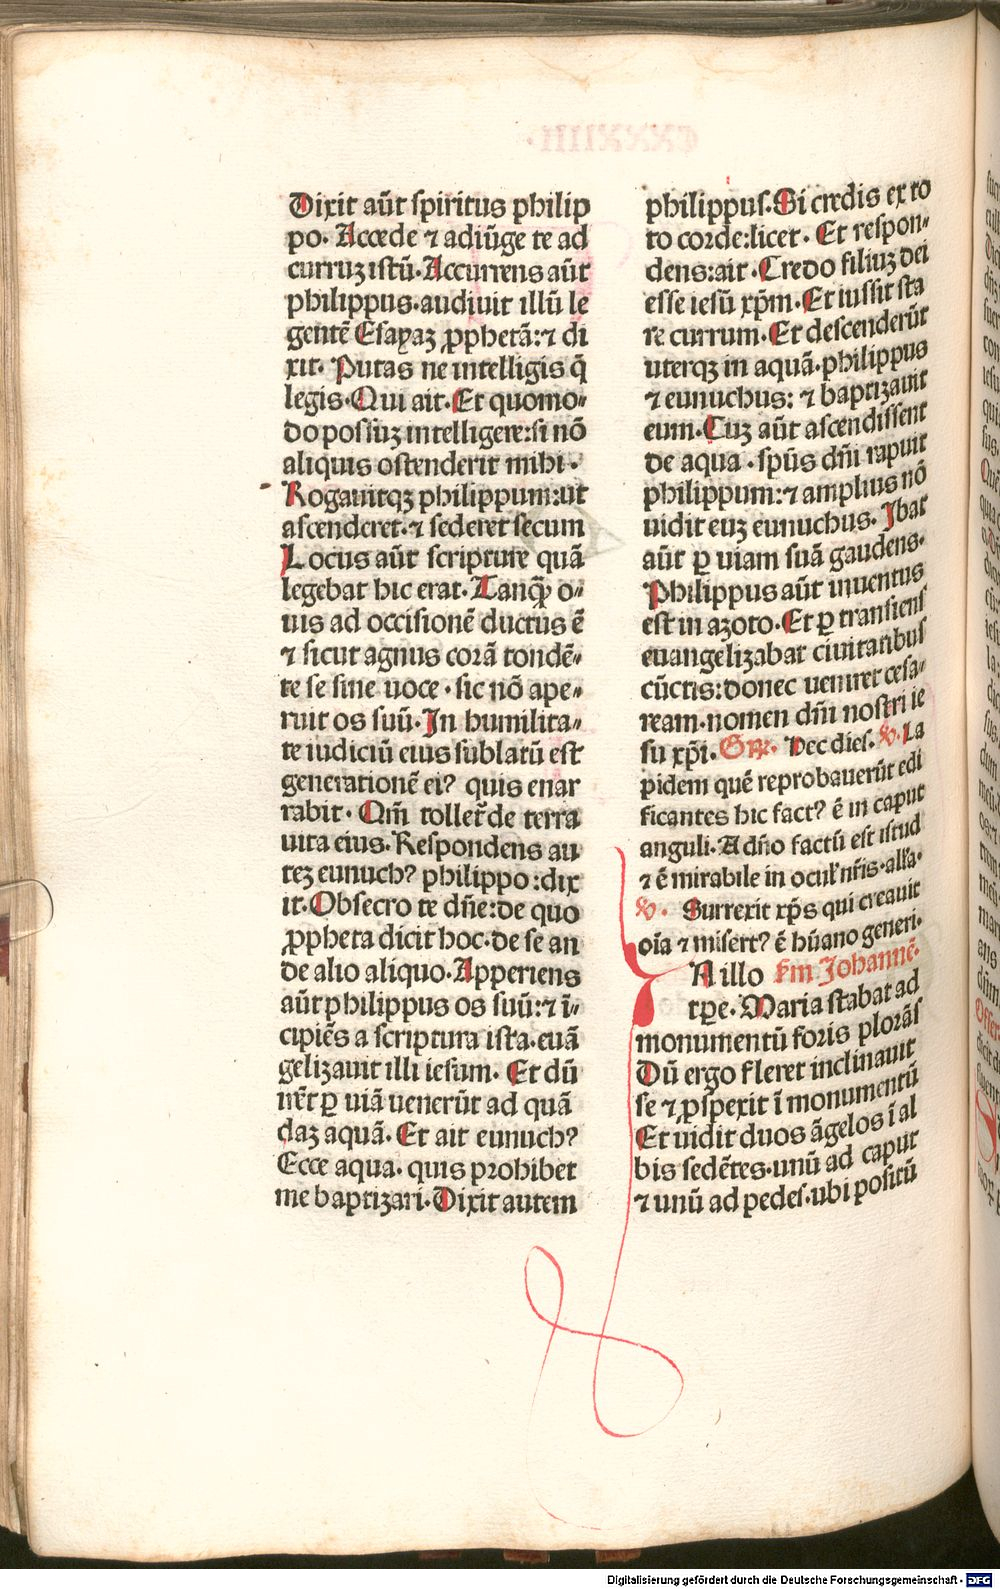 Dixit aūt spiritus philip
po. Accede ⁊ adiūge te ad
curruʒ istū. Accurrens aūt
philippus. audiuit illū le
gentē Esayaʒ ꝓphetā: ⁊ di
xit. Putas ne intelligis q̄
legis. Qui ait. Et quomo⸗
do possūʒ intelligere: si nō
aliquis ostenderit mihi.
Rogauitqʒ philippum: ut
ascenderet. ⁊ sederet secum
Locus aūt scripture quā
legebat hic erat. Tanq̄ȝ o⸗
uis ad occisionē ductus ē
⁊ sicut agnus corā tondē⸗
te se sine uoce. sic nō ape⸗
ruit os suū. In humilita⸗
te iudiciū eius sublatū est
generationē eiꝰ quis enar
rabit. Qm̄ tollet̄ de terra
uita eius. Respondens au
teʒ eunuchꝰ philippo: dix
it. Obsecro te dn̄e: de quo
ꝓpheta dicit hoc. de se an
de alio aliquo. Apperiens
aūt philippus os suū: ⁊ ī⸗
cipiēs a scriptura ista. euā
gelizauit illi iesum. Et dū
irēt ꝑ uiā uenerūt ad quā
daʒ aquā. Et ait eunuchꝰ
Ecce aqua. quis prohibet
me baptizari. Dixit autem
philippus. Si credis ex to
to corde: licet. Et respon⸗
dens: ait. Credo filiuʒ dei
esse iesū xp̄m. Et iussit sta
re currum. Et descenderūt
uterqʒ in aquā. philippus
⁊ eunuchus: ⁊ baptizauit
eum. Cuʒ aūt ascendissent
de aqua. sp̄us dn̄i rapuit
philippum: ⁊ amplius nō
uidit euʒ eunuchus. Ibat
aūt ꝑ uiam suā gaudens.
Philippus aūt inuentus
est in azoto. Et ꝑ transiens
euangelizabat ciuitatibus
cūctis: donec ueniret cesa⸗
ream. nomen dn̄i nostri ie
su xp̄i. Gꝝ. Hec dies. ℣. La
pidem quē reprobauerūt edi
ficantes hic factꝰ ē in caput
anguli. A dn̄o factū est istud
⁊ ē mirabile in ocul̄ nr̄is. all̄a.
℣. Surrexit xp̄s qui creauit
oīa ⁊ misertꝰ ē hūano generi.
N illo fm Johannē.
tꝑe. Maria stabat ad
monumentū foris plorās
Dū ergo fleret inclinauit
se ⁊ ꝓspexit ī monumentū
Et uidit duos āgelos ī al
bis sedētes. unū ad caput
⁊ unū ad pedes. ubi positū
Digitalisierung gefördert durch die Deutsche Forschungsgemeinschaft - DFG